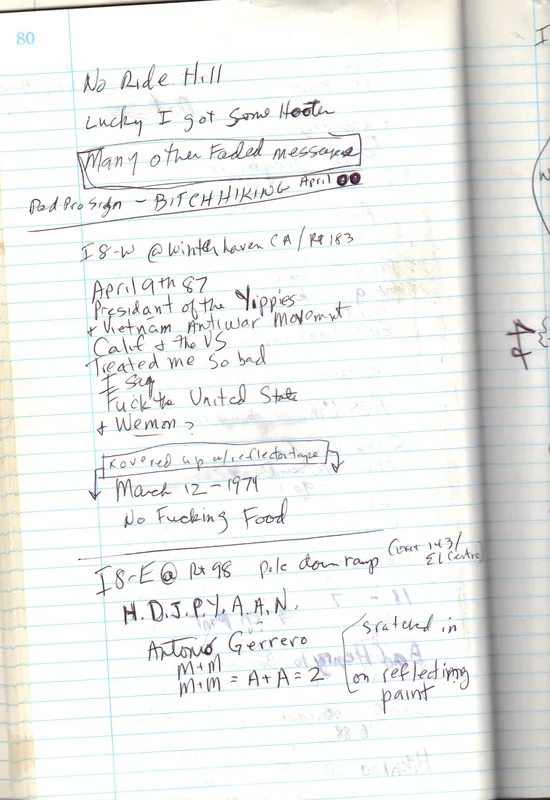 80
No Ride Hill
Lucky I got some Hooter
Many other Faded messages
Ped Pro Sign - BITCHHIKING April 00
I8-W @ Winterhaven CA / Rt 183
April 9th 87
Presidant of the Yippies
+ Vietnam Antiwar Movemnt
Calif + the US
Treated me so bad
I say
Fuck the United State
+ Wemon ?
Kovered up w/reflector tape
March 12-1974
No Fucking Food
I8-E @ Rt 98 Pole down ramp (exit 143/
El Centro)
H.D.J.P.Y.A.A.N.
Antonio Gerrero
M+M
M+M = A+A = 2
sratched in
on reflectiing
paint